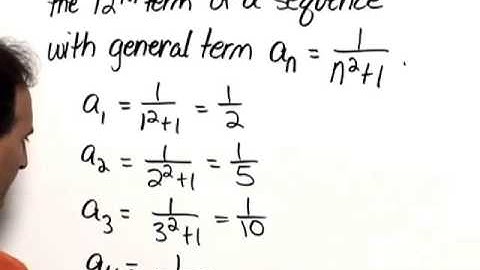 the 12th term of a sequence
with general term aₙ = 1/(n²+1).
a₁ = 1/(1²+1) = 1/2
a₂ = 1/(2²+1) = 1/5
a₃ = 1/(3²+1) = 1/10
a₄ = 1